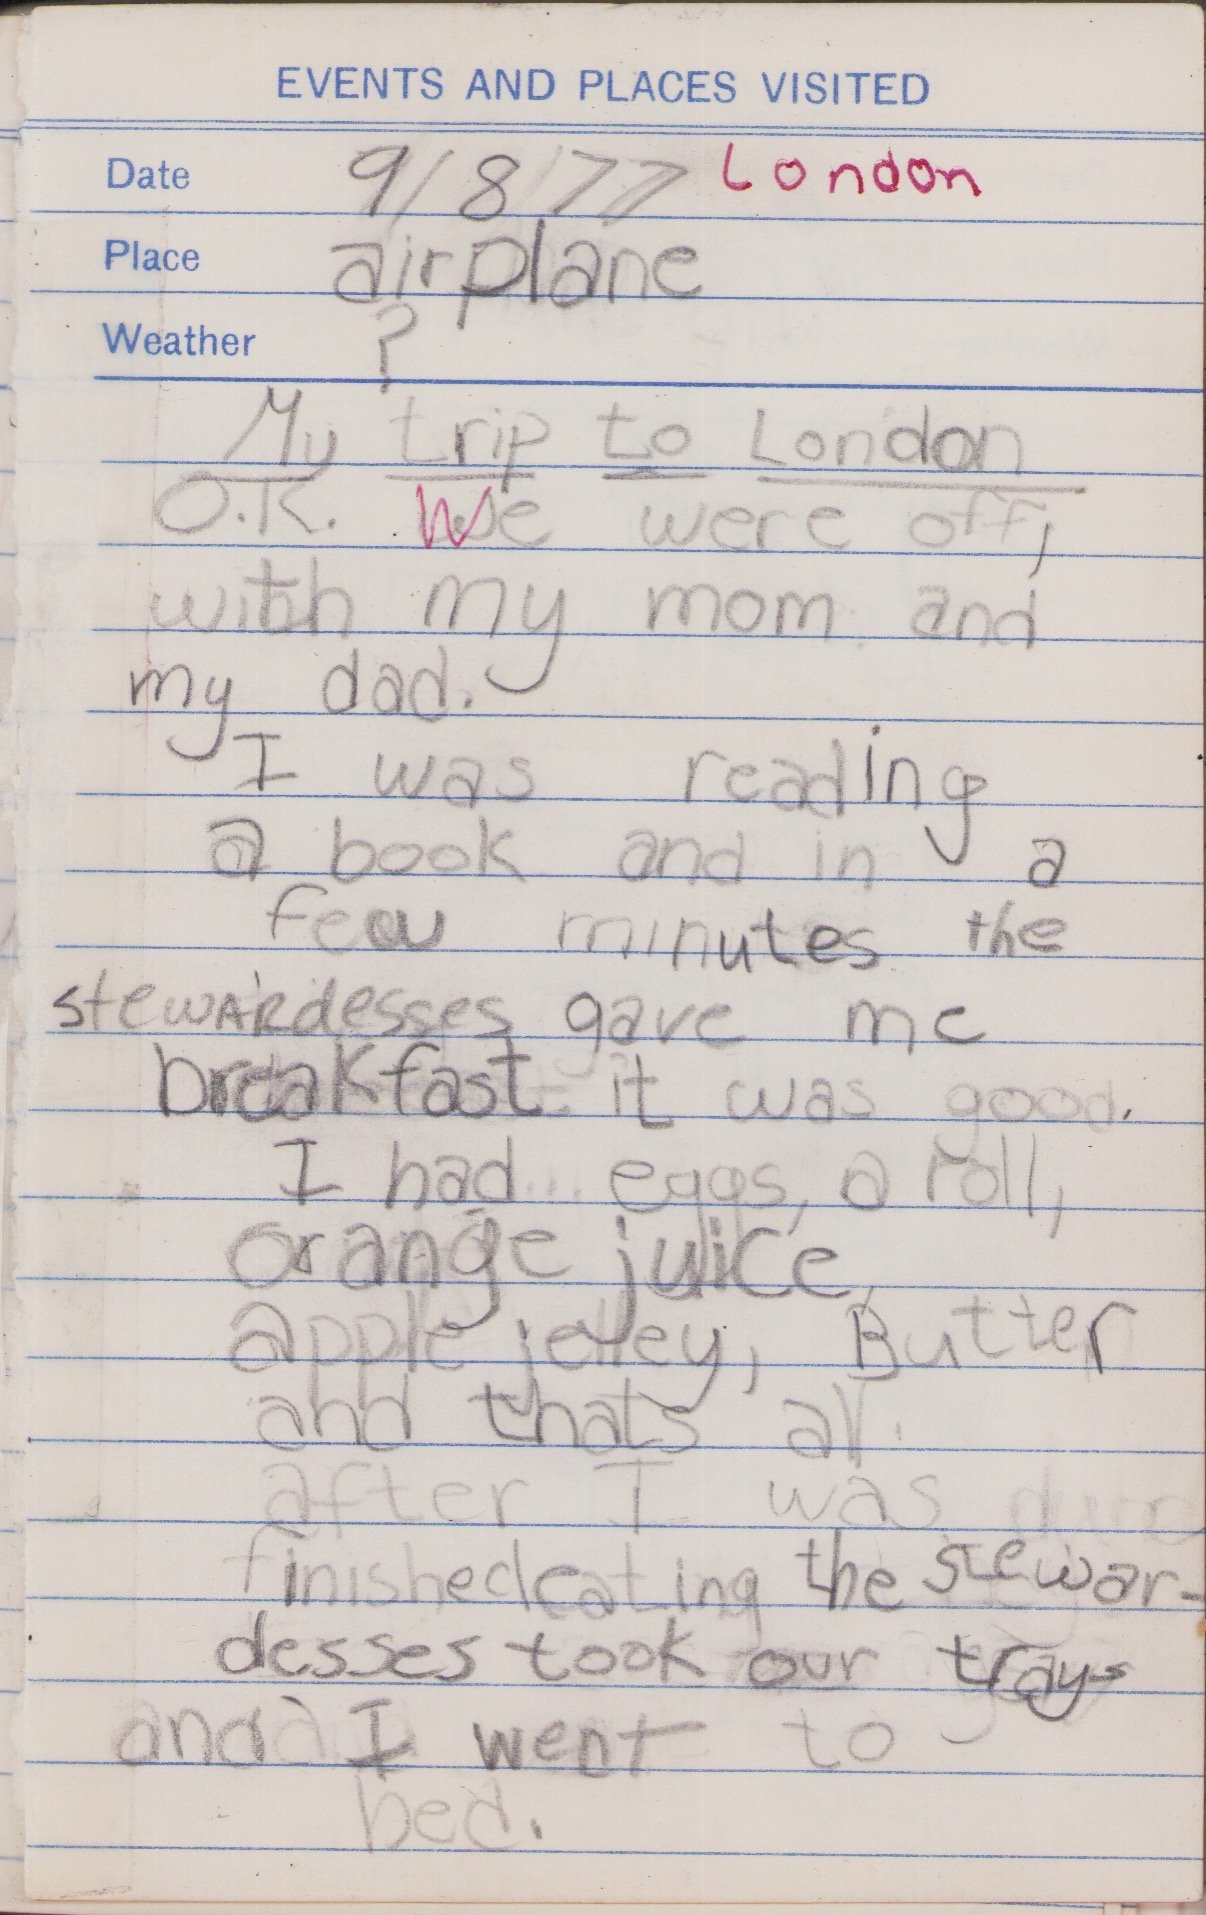 EVENTS AND PLACES VISITED
Date 9/8/77 London
Place airplane
Weather ?
My trip to London
O.K. We were off,
with my mom and
my dad.
I was reading
a book and in a
few minutes the
stewARdesses gave me
breakfast it was good.
I had... eggs, a roll,
orange juice,
apple jelley, Butter
and thats all.
after I was
finished eating the stewar-
desses took our trays
and I went to
bed.